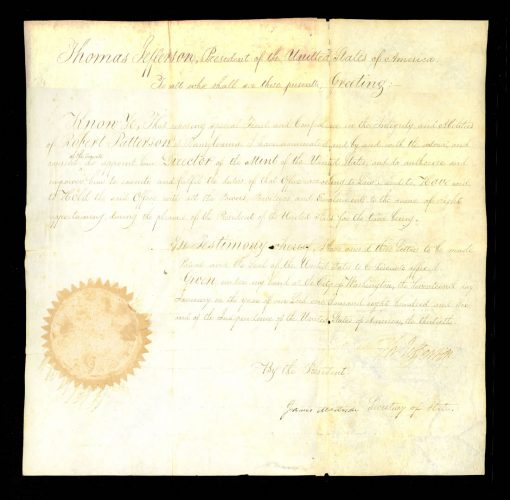 Thomas Jefferson, President of the United States of America
To all who shall see these presents, Greeting:—
Know Ye, That reposing special Trust and Confidence in the Integrity and Abilities
of Robert Patterson of Pennsylvania I have nominated and by and with the advice and
consent of the Senate do appoint him Director of the Mint of the United States, and do authorize and
empower him to execute and fulfil the duties of that Office according to law; and to Have and
to Hold the said Office with all the Powers, Privileges and Emoluments to the same of right
appertaining during the pleasure of the President of the United States for the time being.
In Testimony whereof, I have caused these Letters to be made
Patent and the Seal of the United States to be hereunto affixed.
Given under my hand at the City of Washington, the day
January in the year of our Lord one thousand eight hundred and
and of the Independence of the United States of America, the Thirtieth.
Th Jefferson
By the President
James Madison Secretary of State.